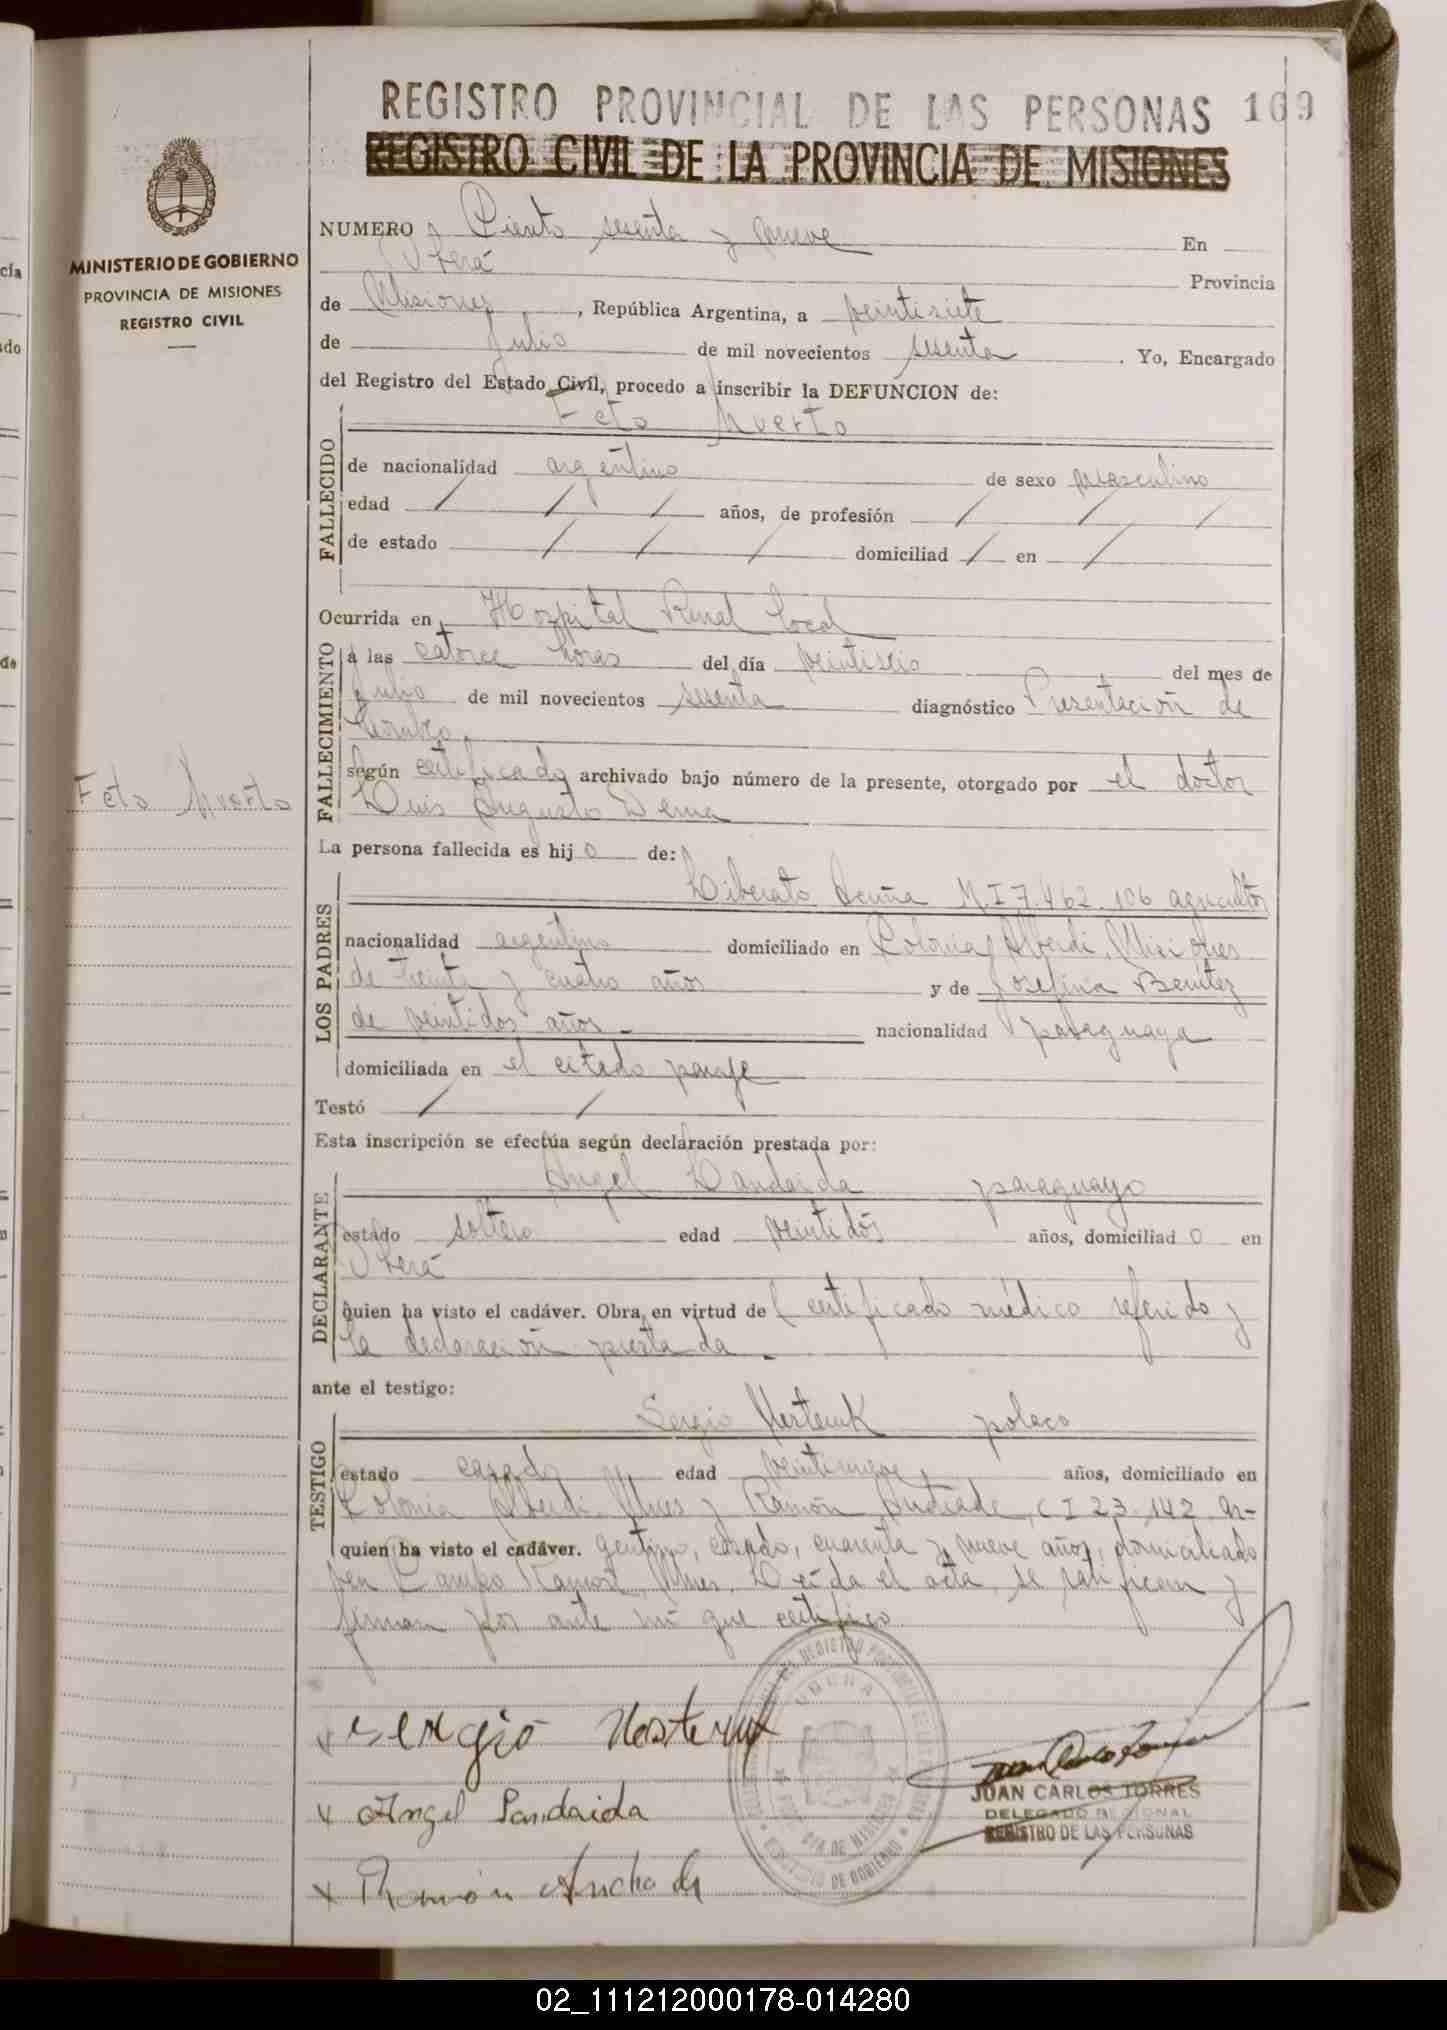 REGISTRO PROVINCIAL DE LAS PERSONAS 169
REGISTRO CIVIL DE LA PROVINCIA DE MISIONES
MINISTERIO DE GOBIERNO
PROVINCIA DE MISIONES
REGISTRO CIVIL
NUMERO Ciento sesenta y nueve En
Oberá Provincia
de Misiones, República Argentina, a veintisiete
de Julio de mil novecientos sesenta. Yo, Encargado
del Registro del Estado Civil, procedo a inscribir la DEFUNCION de:
Feto Muerto
FALLECIDO
de nacionalidad argentino de sexo masculino
edad / / / años, de profesión / / /
de estado / / / domiciliad / en /
Ocurrida en Hospital Rural Local
FALLECIMIENTO
a las catorce horas del día veintiseis del mes de
Julio de mil novecientos sesenta diagnóstico Presentación de
hombro.
según certificado archivado bajo número de la presente, otorgado por el doctor
Luis Augusto
Feto Muerto
La persona fallecida es hij o de:
LOS PADRES
Liberato Acuña M.I 7.462.106 agricultor
nacionalidad argentino domiciliado en Colonia Alberdi, Misiones
de treinta y cuatro años y de Josefina Benítez
de veintidos años.- nacionalidad paraguaya
domiciliada en el citado paraje
Testó / /
Esta inscripción se efectúa según declaración prestada por:
DECLARANTE
Angel Landaida paraguayo
estado soltero edad veintidós años, domiciliad o en
Oberá
quien ha visto el cadáver. Obra en virtud del certificado médico referido y
la declaración prestada.-
ante el testigo:
TESTIGO
Sergio polaco
estado casado edad veintinueve años, domiciliado en
Colonia Alberdi, Mnes y Ramón Andrade, C I 23.142 ar-
quien ha visto el cadáver. gentino, casado, cuarenta y nueve años, domiciliado
en Campo Ramón, Mnes. Leída el acta, se ratifican y
firman por ante mí que certifico.
Sergio
x Angel Landaida
x Ramón Andrade
OBERA
JUAN CARLOS TORRES
DELEGADO REGIONAL
REGISTRO DE LAS PERSONAS
02_111212000178-014280